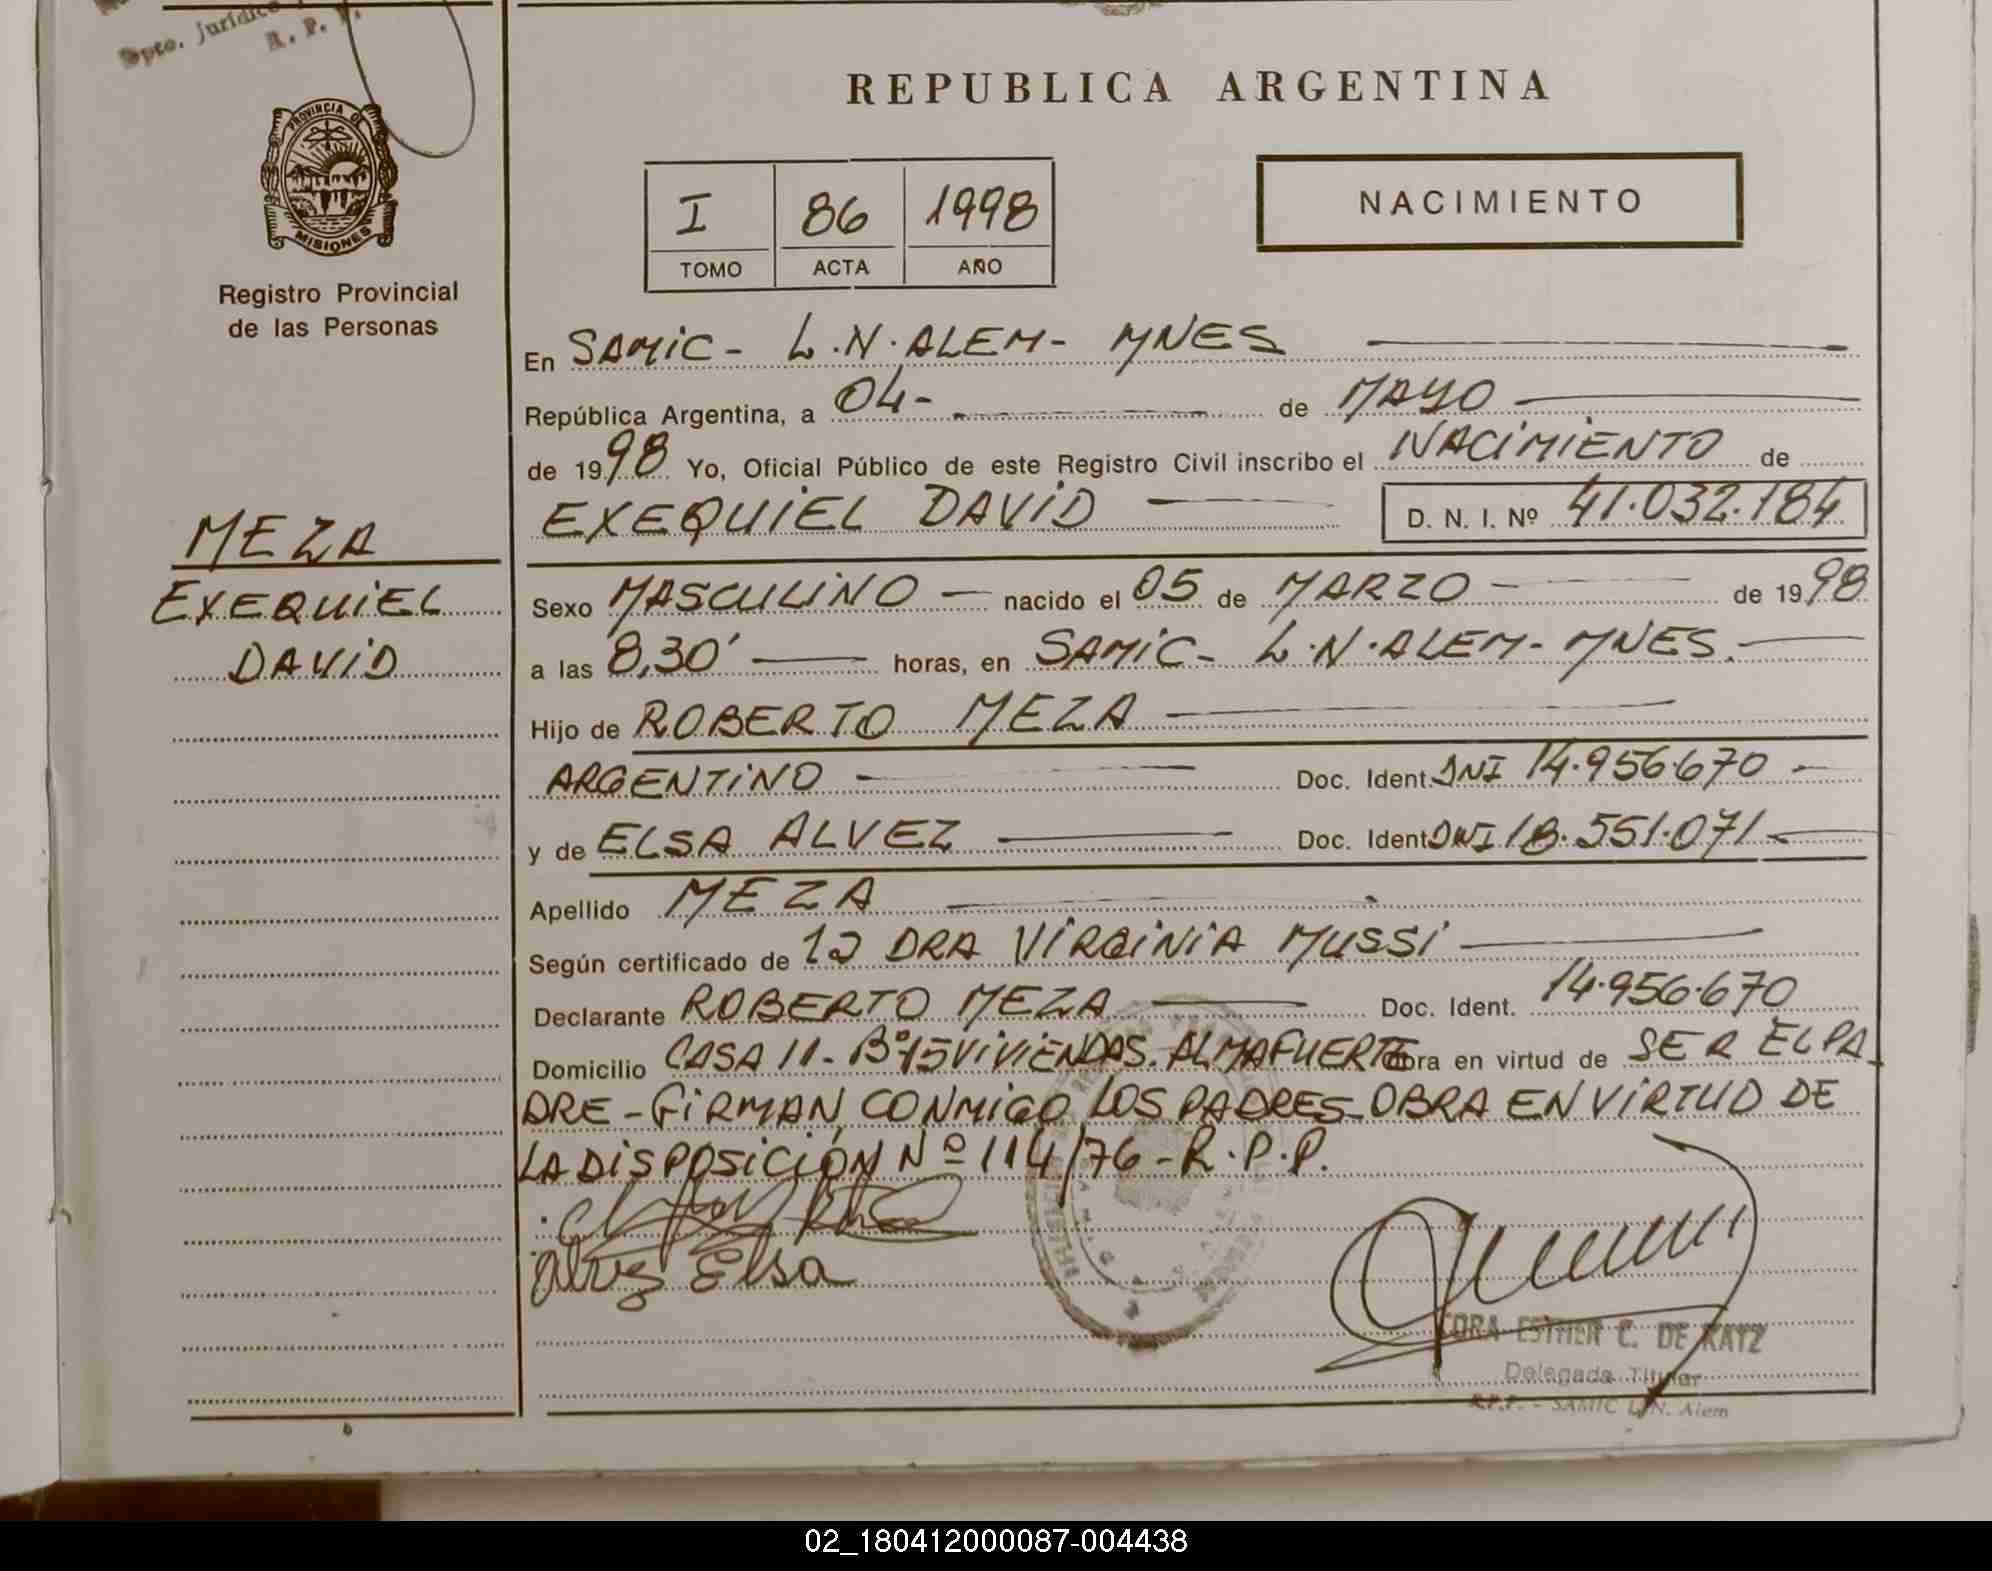 Dpto. Jurídico
R. P. P.
PROVINCIA DE
MISIONES
Registro Provincial
de las Personas
MEZA
EXEQUIEL
DAVID
REPUBLICA ARGENTINA
I 86 1998
TOMO ACTA AÑO
NACIMIENTO
En SAMIC - L.N.ALEM - MNES
República Argentina, a 04- de MAYO
de 1998 Yo, Oficial Público de este Registro Civil inscribo el NACIMIENTO de
EXEQUIEL DAVID D. N. I. Nº 41.032.184
Sexo MASCULINO nacido el 05 de MARZO de 1998
a las 8,30' horas, en SAMIC - L.N.ALEM - MNES.
Hijo de ROBERTO MEZA
ARGENTINO Doc. Ident. DNI 14.956.670
y de ELSA ALVEZ Doc. Ident. DNI 18.551.071
Apellido MEZA
Según certificado de la DRA VIRGINIA MUSSI
Declarante ROBERTO MEZA Doc. Ident. 14.956.670
Domicilio CASA 11 - Bº 15 VIVIENDAS. ALMAFUERTE obra en virtud de SER EL PA-
DRE - FIRMAN CONMIGO LOS PADRES - OBRA EN VIRTUD DE
LA DISPOSICIÓN Nº 114/76 - R.P.P.
Alvez Elsa
CORA ESTHER C. DE KATZ
Delegada Titular
R.P.P. - SAMIC L.N. Alem
02_180412000087-004438